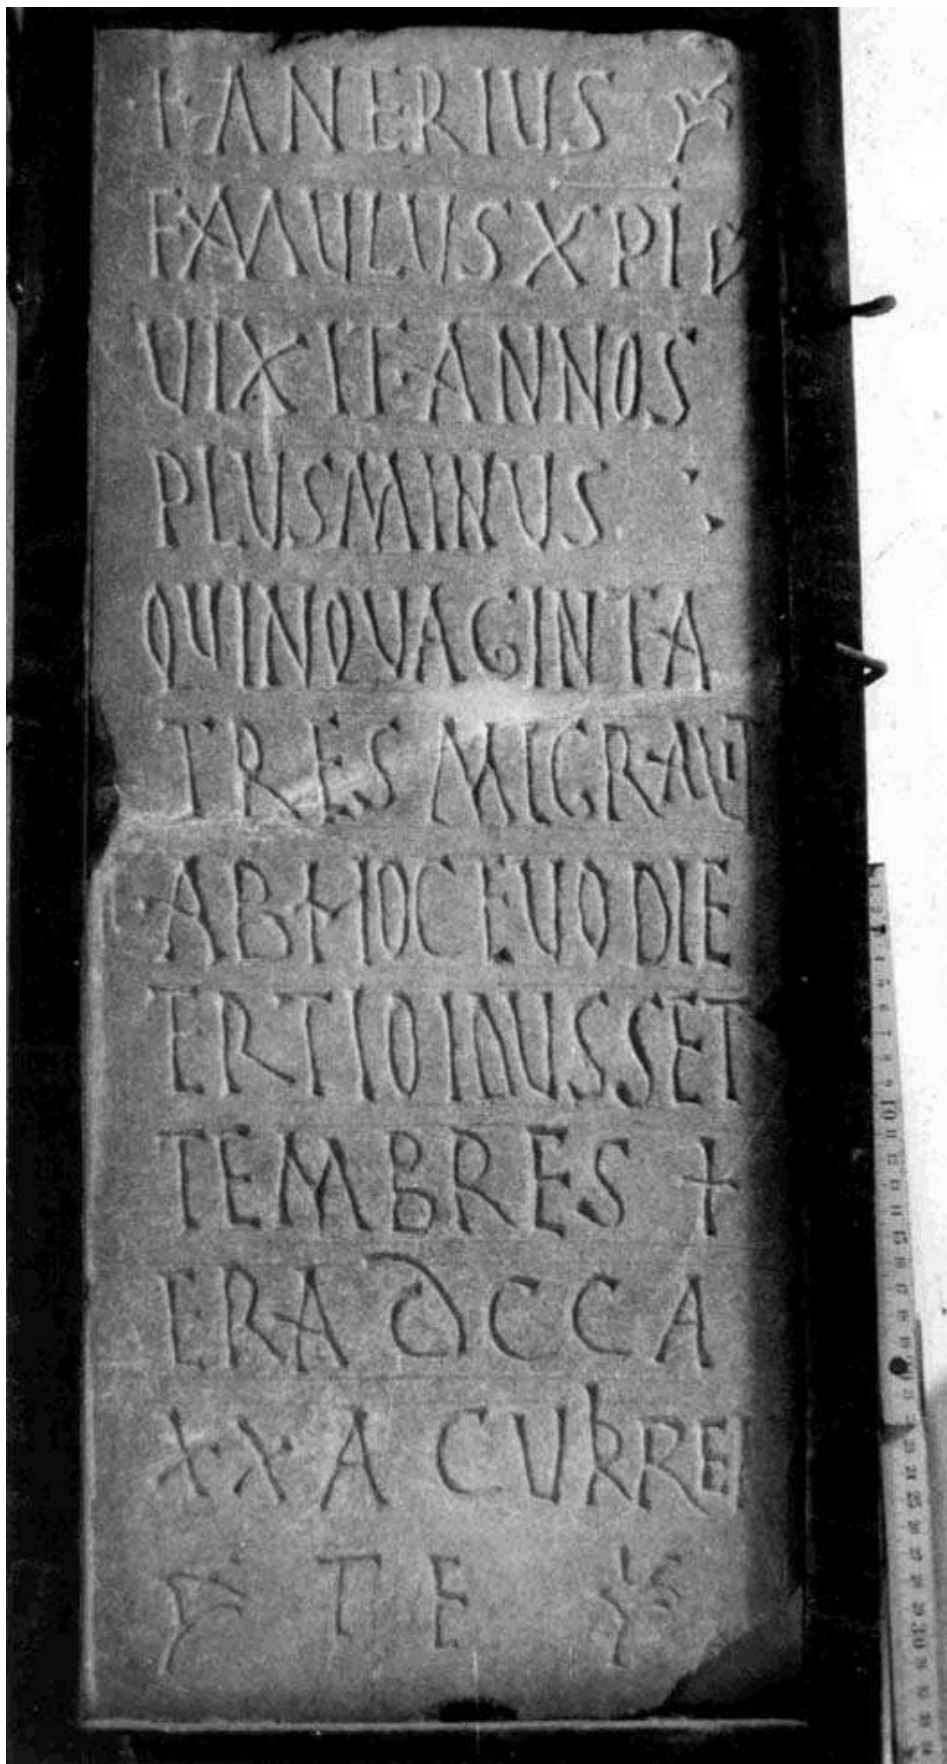 + ANERIUS
FAMULUS XPI
VIXIT ANNOS
PLUSMINUS
QUINQUAGINTA
TRES MIGRAVIT
AB HOC EVO DIE
TERTIO IDUS SET
TEMBRES +
ERA DCCA
XXA CURREN
TE